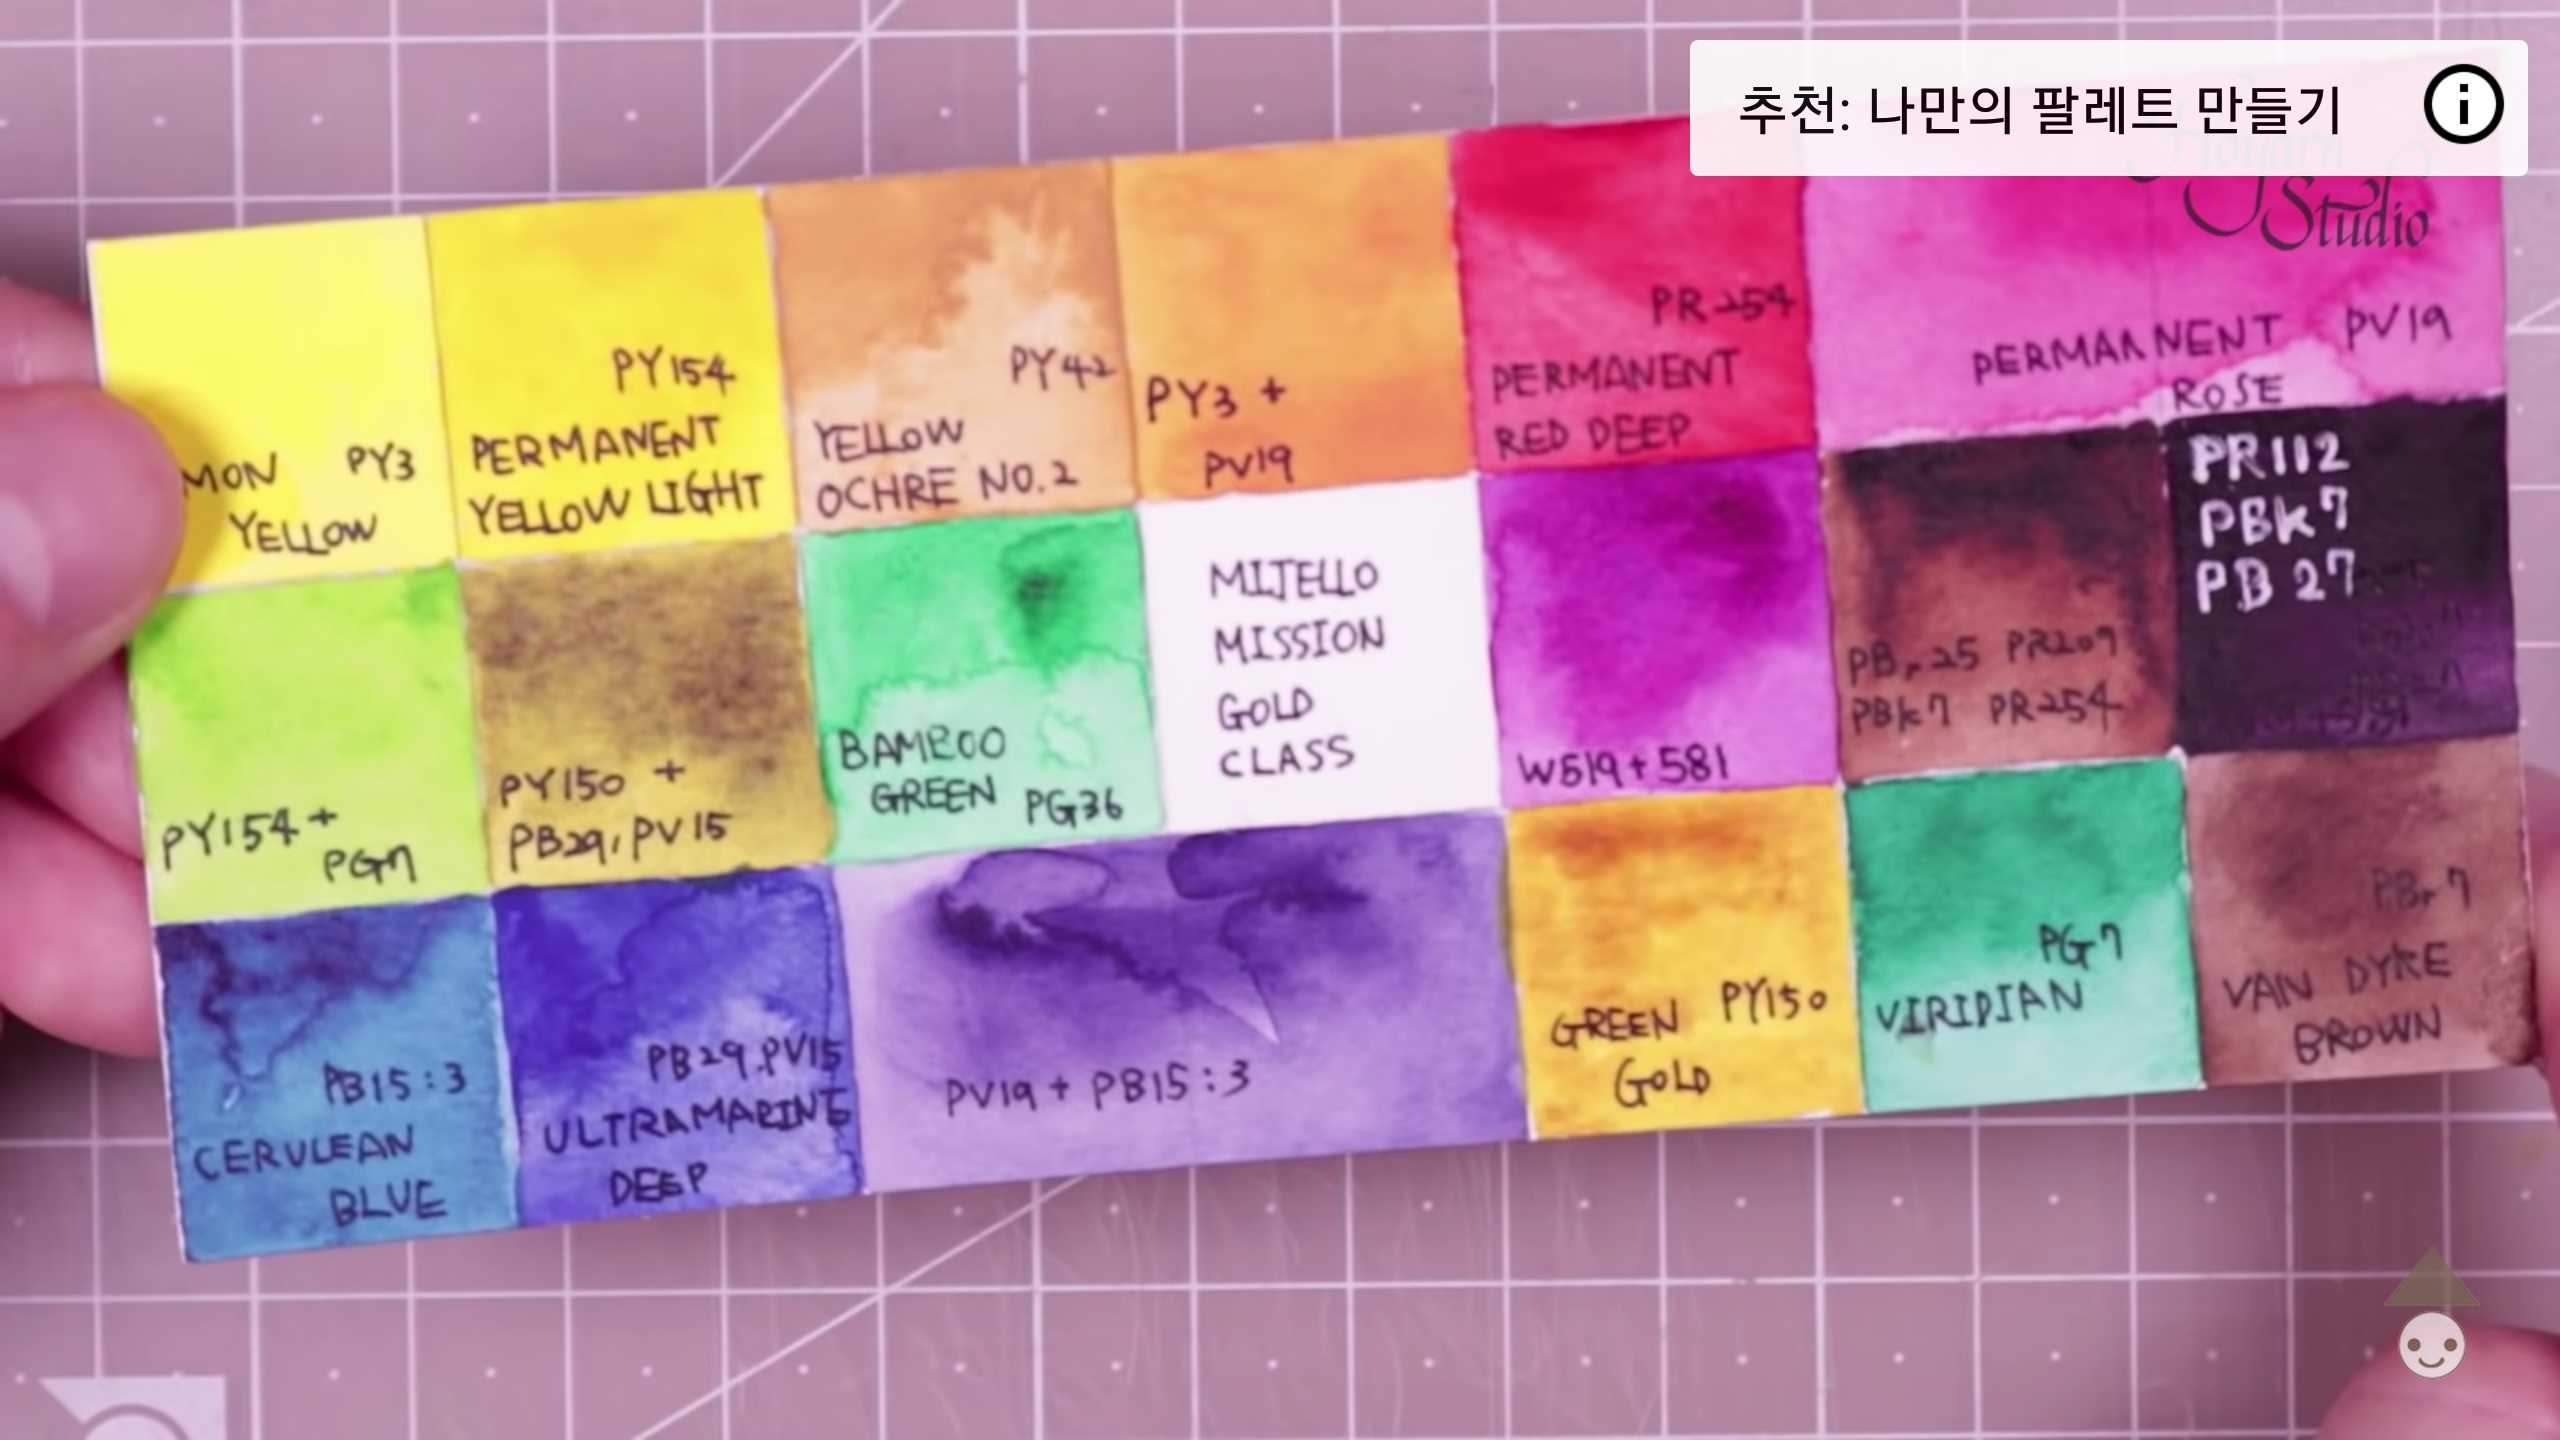 추천: 나만의 팔레트 만들기
Studio
MON PY3
YELLOW
PY154
PERMANENT
YELLOW LIGHT
PY42
YELLOW
OCHRE NO.2
PY3 +
PV19
PR254
PERMANENT
RED DEEP
PERMANENT PV19
ROSE
PY154 +
PG7
PY150 +
PB29, PV15
BAMBOO
GREEN PG36
MIJELLO
MISSION
GOLD
CLASS
W519+581
PBr25 PR209
PBk7 PR254
PR112
PBk7
PB27
PB15:3
CERULEAN
BLUE
PB29.PV15
ULTRAMARINE
DEEP
PV19 + PB15:3
GREEN PY150
GOLD
PG7
VIRIDIAN
PBr7
VAN DYKE
BROWN